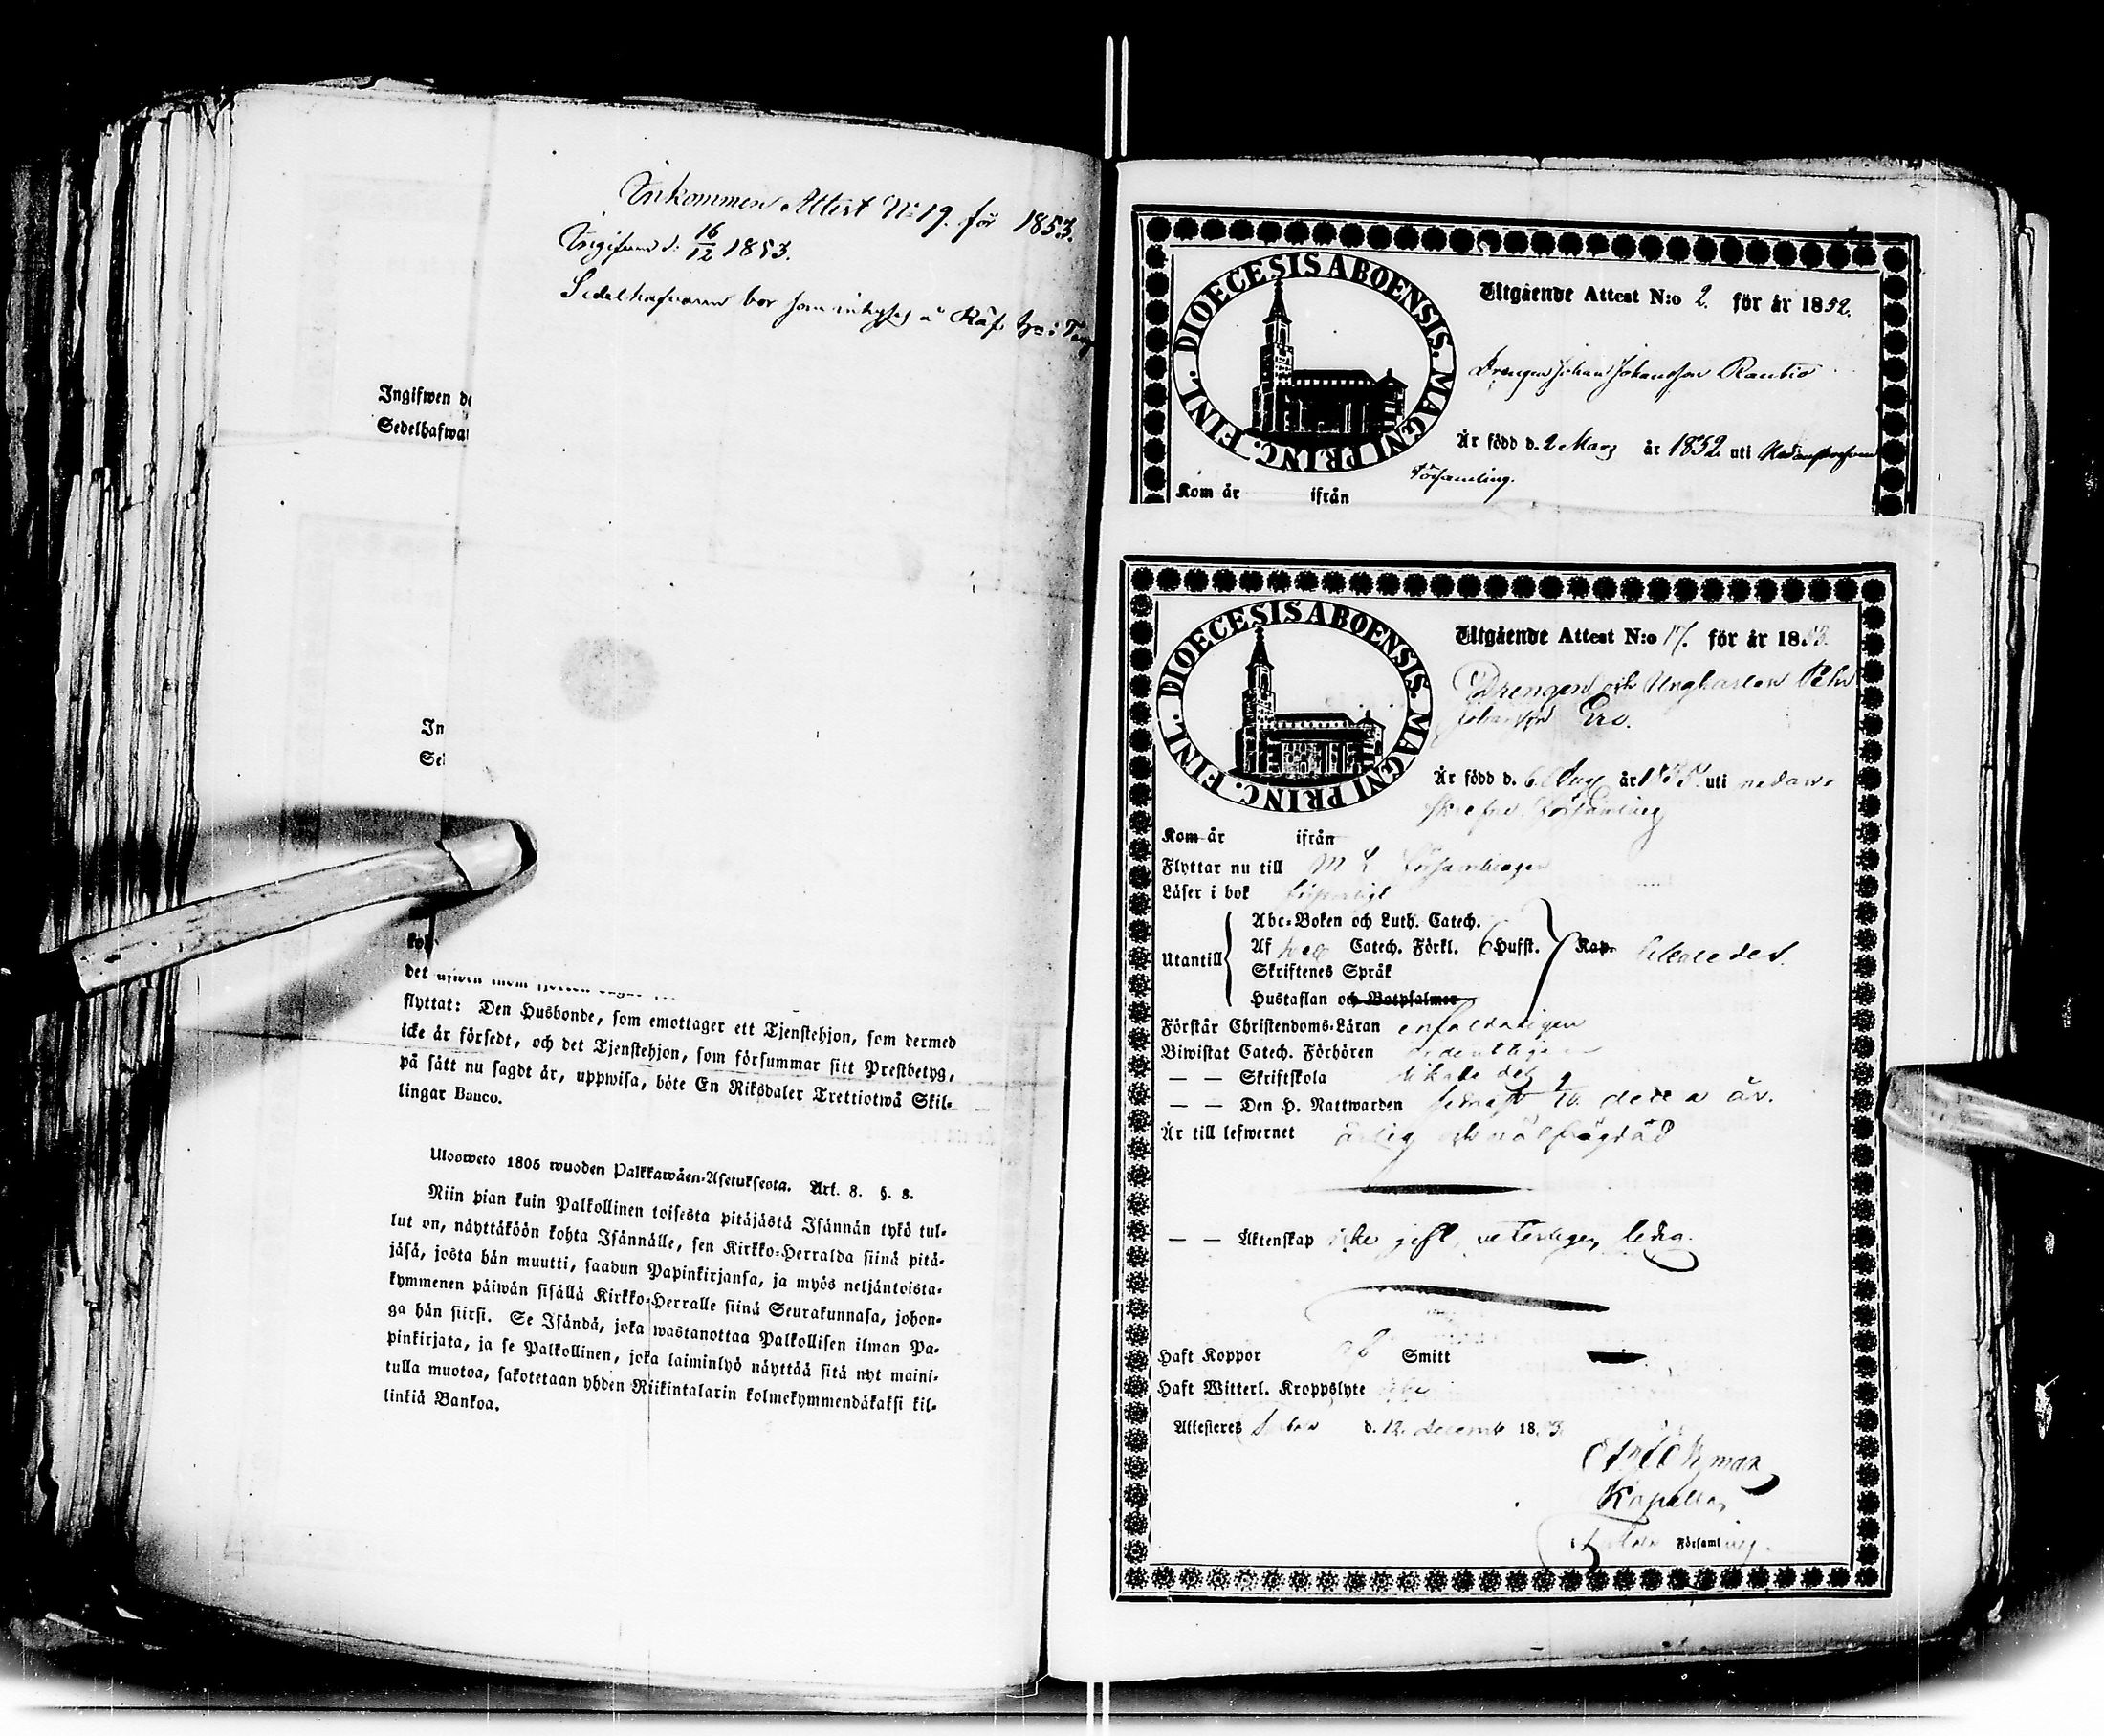 Inkommen Attest N:o 19. för 1853.
16/12 1853.
Sedelhafvaren bor som inhyses å
Ingifwen de
Sedelhafwa
In
Se
det
flyttat: Den Husbonde, som emottager ett Tjenstehjon, som dermed
icke är försedt, och det Tjenstehjon, som försummar sitt Prestbetyg,
på sått nu sagdt är, uppwisa, böte En Riksdaler Trettiotwå Skil-
lingar Banco.
Ulosweto 1805 wuoden Palkkawäen-Asetuksesta. Art. 8. §. 8.
Niin pian kuin Palkollinen toisesta pitäjästä Isännän tykö tul-
lut on, näyttäköön kohta Isännälle, sen Kirkko-Herralda siinä pitä-
jäsä, josta hän muutti, saadun Papinkirjansa, ja myös neljäntoista-
kymmenen päiwän sisällä Kirkko-Herralle siinä Seurakunnasa, johon-
ga hän siirsi. Se Isändä, joka wastanottaa Palkollisen ilman Pa-
pinkirjata, ja se Palkollinen, joka laiminlyö näyttää sitä nyt maini-
tulla muotoa, sakotetaan yhden Riikintalarin kolmekymmendäkaksi kil-
linkiä Bankoa.
DIOECESIS ABOENSIS. MAGNI PRINC. FINL.
Utgående Attest N:o 2. för år 1852.
Drengen Johan Johansson Rautio
Är född d. 2 Mars år 1832 uti
Församling.
Kom år ifrån
DIOECESIS ABOENSIS. MAGNI PRINC. FINL.
Utgående Attest N:o 17. för år 1853.
Drengen och Ungkarlen Pehr
Johansson
Är född d. 6 Aug år 1835 uti nedan-
skrefne Församling
Kom år ifrån
Flyttar nu till Församlingen
Läser i bok försvarligt
Abc-Boken och Luth. Catech.
Utantill Af Catech. Förkl. 6 Hufst. Kap. likaledes.
Skriftenes Språk
Hustaflan och Botpsalmer
Förstår Christendoms-Läran enfaldeligen
Biwistat Catech. Förhören ordentligen
— — Skriftskola likaledes
— — Den H. Nattwarden senast år.
Är till lefwernet ärlig och välfrägdad
— — Äktenskap icke gift, ledig.
Haft Koppor af Smitt
Haft Witterl. Kroppslyte icke
Attesteres d. 12. december 1853.
Öhman
Kapellan
i Församling.